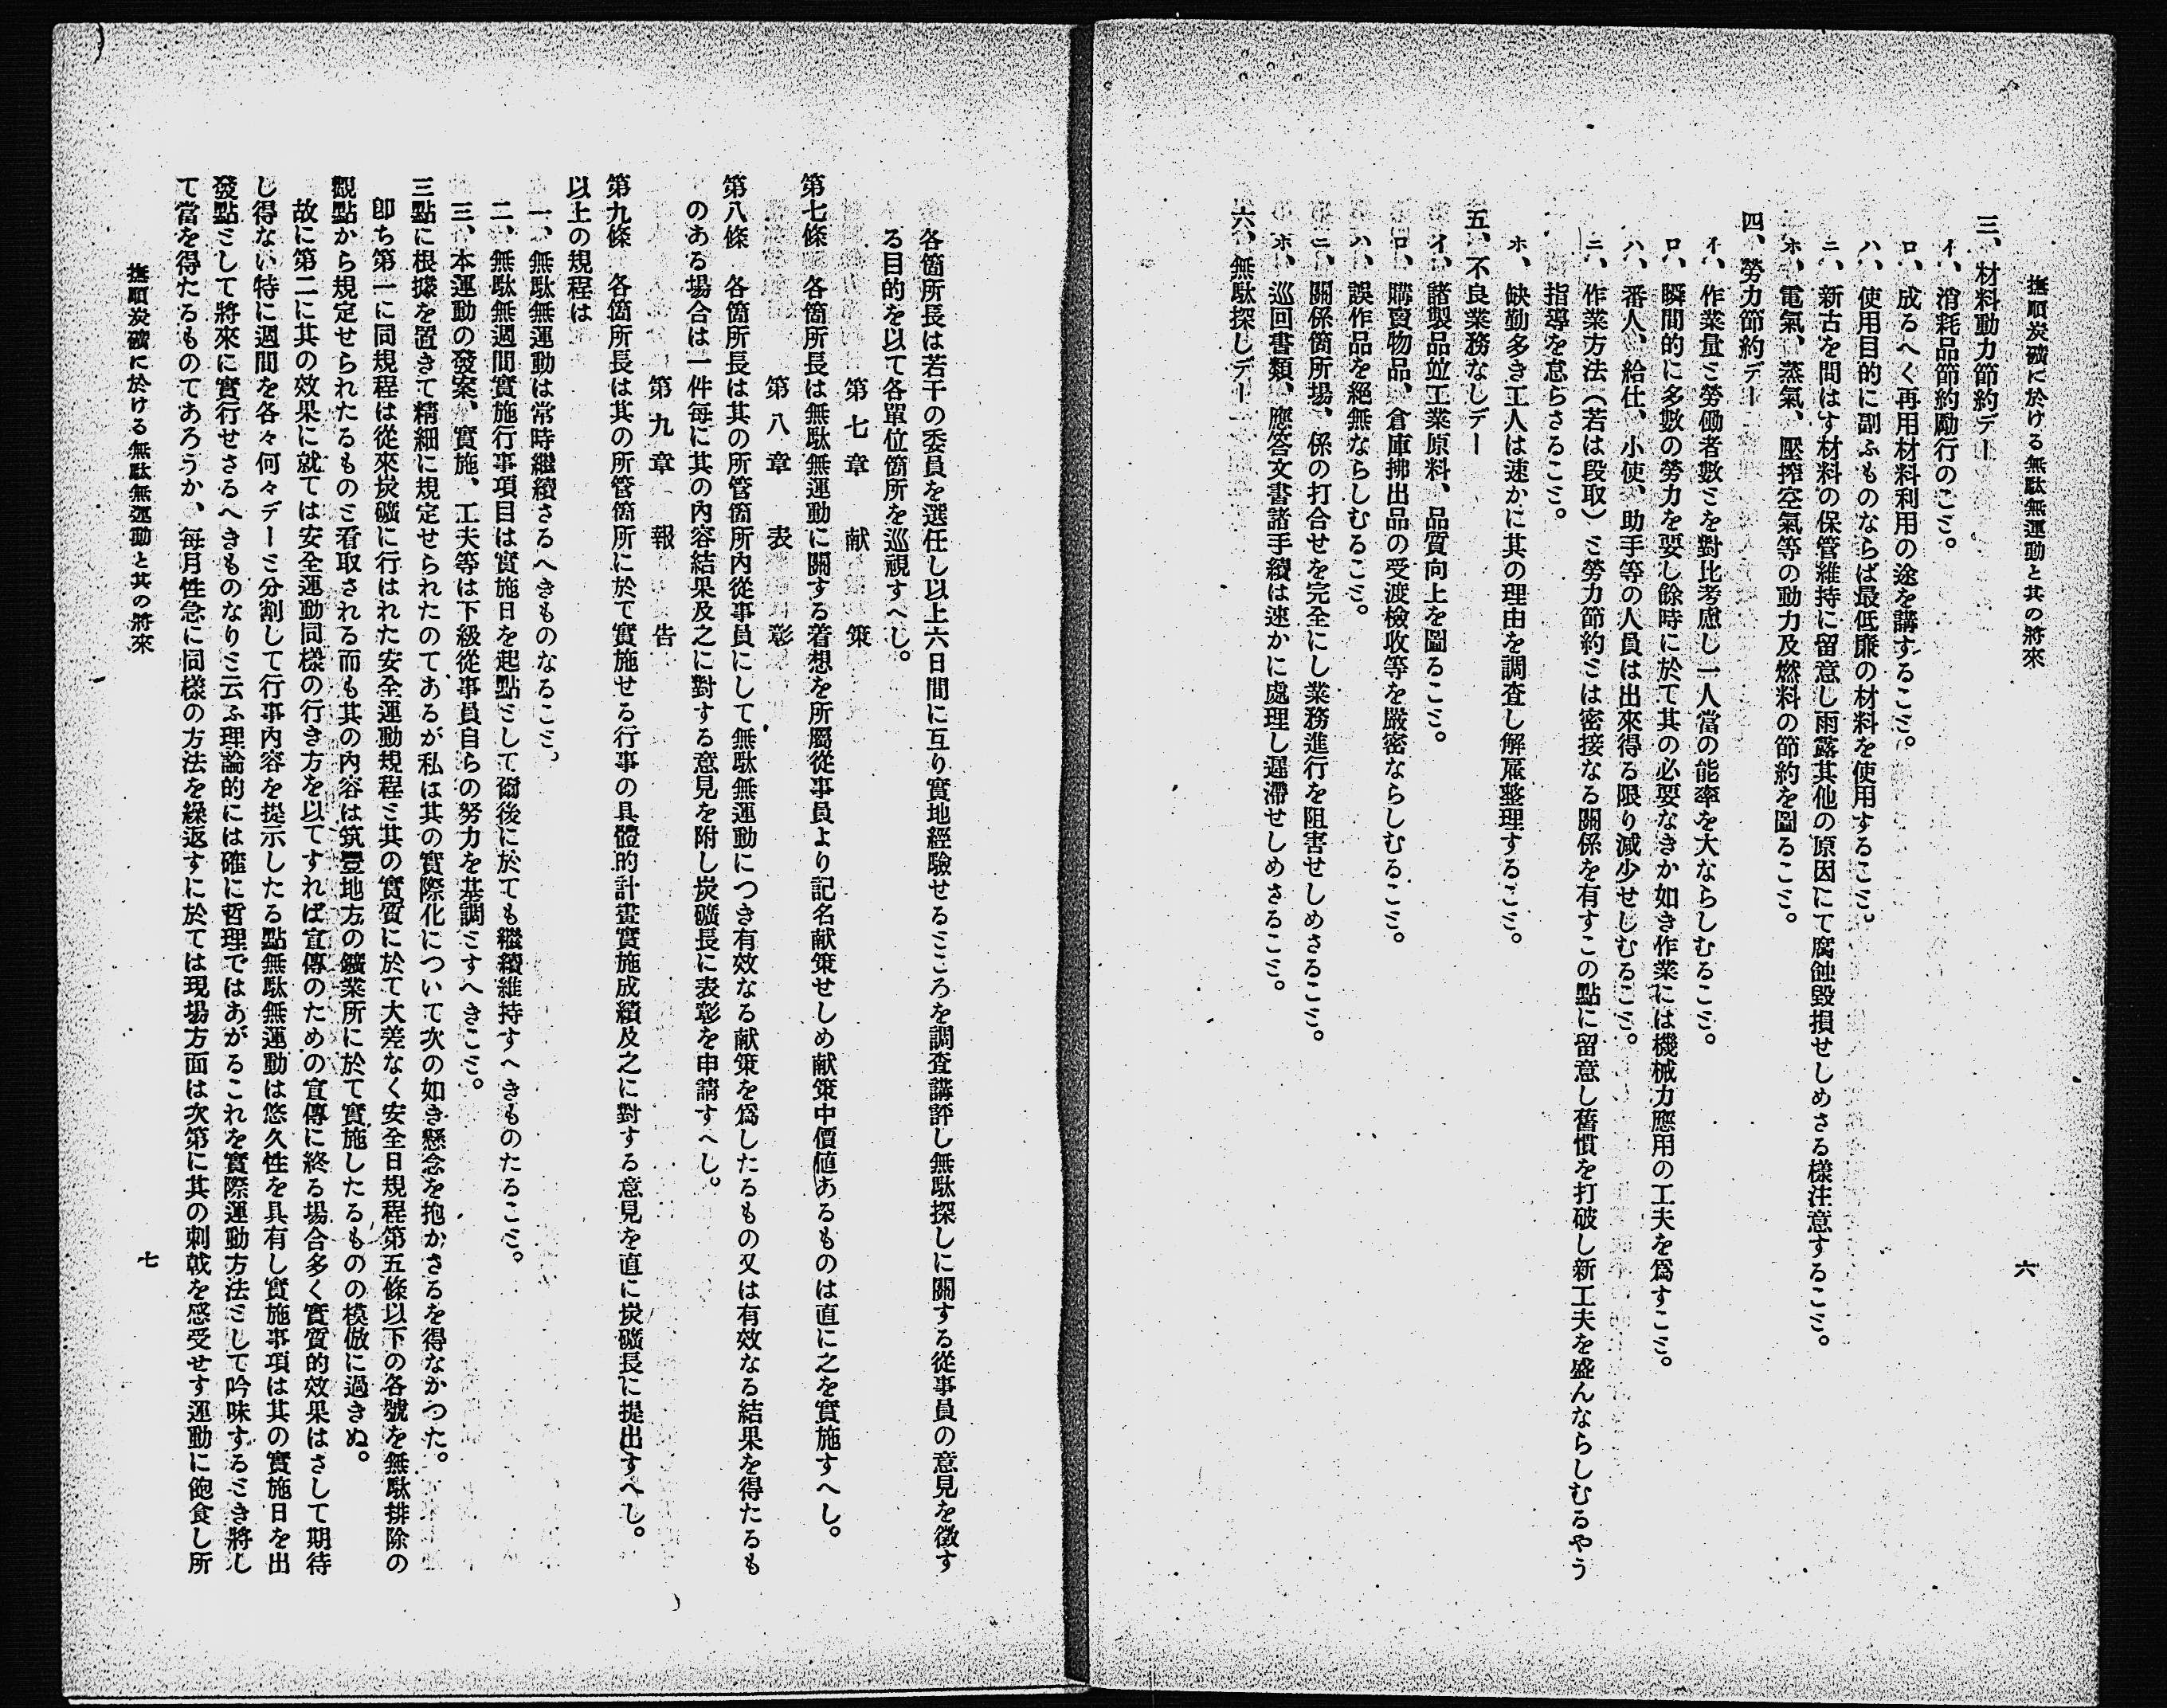 撫順炭礦に於ける無駄無運動と其の將來
六
三、材料動力節約デー
イ、消耗品節約勵行のこと。
ロ、成るへく再用材料利用の途を講すること。
ハ、使用目的に副ふものならば最低廉の材料を使用すること。
ニ、新古を問はす材料の保管維持に留意し雨露其他の原因にて腐蝕毀損せしめさる樣注意すること。
ホ、電氣、蒸氣、壓搾空氣等の動力及燃料の節約を圖ること。
四、勞力節約デー
イ、作業量と勞働者數とを對比考慮し一人當の能率を大ならしむること。
ロ、瞬間的に多數の勞力を要し餘時に於て其の必要なきか如き作業には機械力應用の工夫を爲すこと。
ハ、番人、給仕、小使、助手等の人員は出來得る限り減少せしむること。
ニ、作業方法（若は段取）と勞力節約とは密接なる關係を有すこの點に留意し舊慣を打破し新工夫を盛んならしむるやう
指導を怠らさること。
ホ、缺勤多き工人は速かに其の理由を調査し解雇整理すること。
五、不良業務なしデー
イ、諸製品竝工業原料、品質向上を圖ること。
ロ、購買物品、倉庫拂出品の受渡檢收等を嚴密ならしむること。
ハ、誤作品を絕無ならしむること。
ニ、關係箇所場、係の打合せを完全にし業務進行を阻害せしめさること。
ホ、巡回書類、應答文書諸手續は速かに處理し遲滯せしめさること。
六、無駄探しデー
各箇所長は若干の委員を選任し以上六日間に亙り實地經驗せるところを調査講評し無駄探しに關する從事員の意見を徵す
る目的を以て各單位箇所を巡視すへし。
第七章　献策
第七條　各箇所長は無駄無運動に關する着想を所屬從事員より記名献策せしめ献策中價値あるものは直に之を實施すへし。
第八章　表彰
第八條　各箇所長は其の所管箇所內從事員にして無駄無運動につき有效なる献策を爲したるもの又は有效なる結果を得たるも
のある場合は一件每に其の內容結果及之に對する意見を附し炭礦長に表彰を申請すへし。
第九章　報告
第九條　各箇所長は其の所管箇所に於て實施せる行事の具體的計畫實施成績及之に對する意見を直に炭礦長に提出すへし。
以上の規程は
一、無駄無運動は常時繼續さるへきものなること。
二、無駄無週間實施行事項目は實施日を起點として爾後に於ても繼續維持すへきものたること。
三、本運動の發案、實施、工夫等は下級從事員自らの努力を基調とすへきこと。
三點に根據を置きて精細に規定せられたのてあるが私は其の實際化について次の如き懸念を抱かさるを得なかつた。
卽ち第一に同規程は從來炭礦に行はれた安全運動規程と其の實質に於て大差なく安全日規程第五條以下の各號を無駄排除の
觀點から規定せられたるものと看取される而も其の內容は筑豐地方の鑛業所に於て實施したるものの模倣に過きぬ。
故に第二に其の效果に就ては安全運動同樣の行き方を以てすれば宣傳のための宣傳に終る場合多く實質的效果はさして期待
し得ない特に週間を各々何々デーと分割して行事內容を提示したる點無駄無運動は悠久性を具有し實施事項は其の實施日を出
發點として將來に實行せさるへきものなりと云ふ理論的には確に哲理ではあがるこれを實際運動方法として吟味するとき將し
て當を得たるものてあろうか、每月性急に同樣の方法を繰返すに於ては現場方面は次第に其の刺戟を感受せす運動に飽食し所
撫順炭礦に於ける無駄無運動と其の將來
七